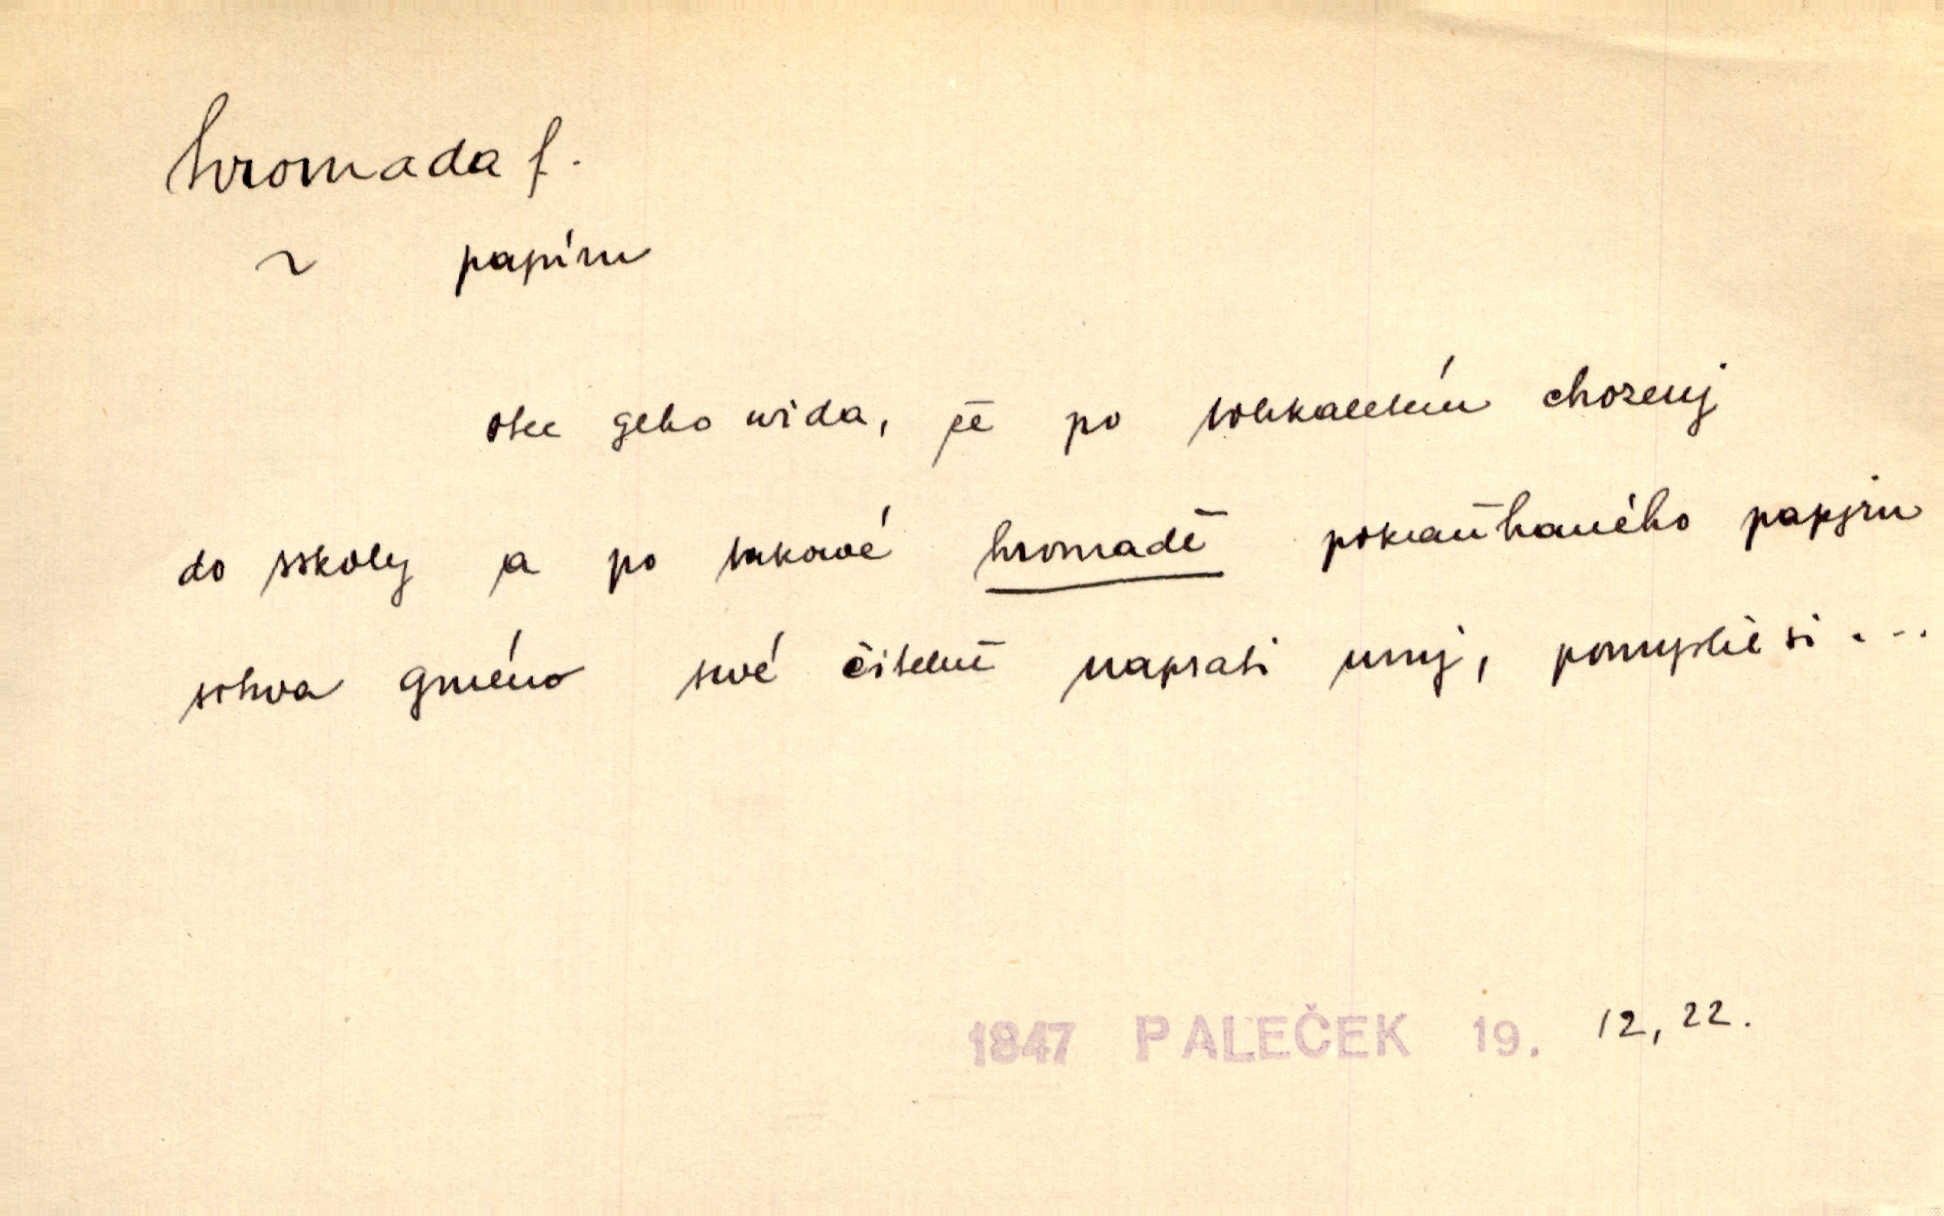 hromada f.
~ papíru
otec geho wida, že po tolikaletém chozenj
do sskoly a po takowé hromadě pokaňhaného papjru
sotva gméno swé čitelně napsati umj, pomyslil si ...
1847 PALEČEK 19. 12, 22.